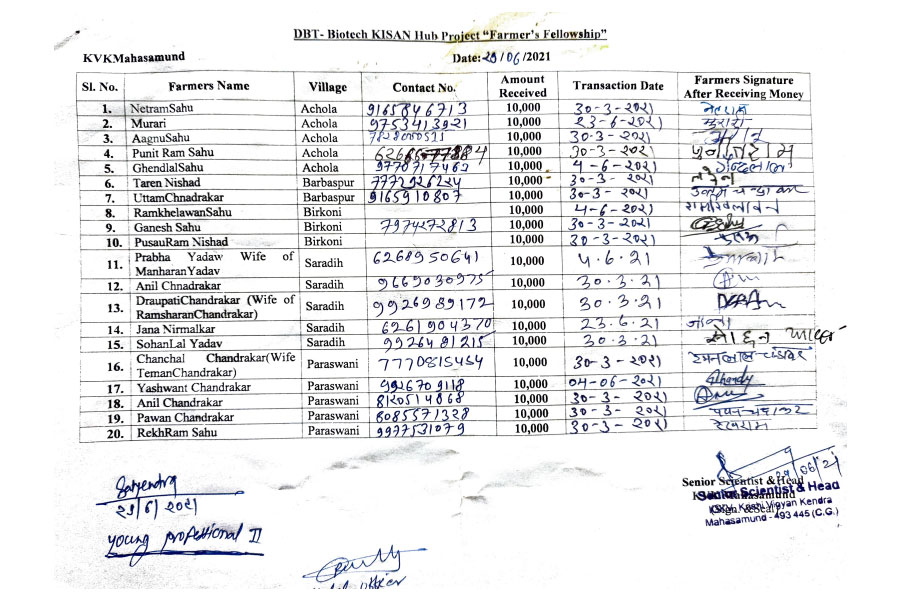 DBT- Biotech KISAN Hub Project “Farmer’s Fellowship”
KVKMahasamund Date: /06/2021
Sl. No. Farmers Name Village Contact No. Amount Received Transaction Date Farmers Signature After Receiving Money
1. NetramSahu Achola 9165846713 10,000 30-3-२०२१ नेतराम
2. Murari Achola 9753413921 10,000 23-6-२०२१ मुरारी
3. AagnuSahu Achola 10,000 30-3-२०२१
4. Punit Ram Sahu Achola 10,000 30-3-२०२१ पुनीतराम
5. GhendlalSahu Achola 9770717463 10,000 4-6-२०२१ गेन्दलाल
6. Taren Nishad Barbaspur 7772926224 10,000 30-3-२०२१ तरेन
7. UttamChnadrakar Barbaspur 9165910807 10,000 30-3-२०२१
8. RamkhelawanSahu Birkoni 10,000 4-6-२०२१ रामखेलावन
9. Ganesh Sahu Birkoni 7974272813 10,000 30-3-२०२१
10. PusauRam Nishad Birkoni 10,000 30-3-२०२१
11. Prabha Yadaw Wife of ManharanYadav Saradih 6268950641 10,000 4.6.21
12. Anil Chnadrakar Saradih 9669030975 10,000 30.3.21
13. DraupatiChandrakar (Wife of RamsharanChandrakar) Saradih 9926989172 10,000 30.3.21
14. Jana Nirmalkar Saradih 6261904370 10,000 23.6.21
15. SohanLal Yadav Saradih 9926491215 10,000 30.3.21
16. Chanchal Chandrakar(Wife TemanChandrakar) Paraswani 7770815454 10,000 30-3-२०२१
17. Yashwant Chandrakar Paraswani 9926709118 10,000 04-06-२०२१
18. Anil Chandrakar Paraswani 8120514868 10,000 30-3-२०२१
19. Pawan Chandrakar Paraswani 8085571328 10,000 30-3-२०२१
20. RekhRam Sahu Paraswani 9977531079 10,000 30-3-२०२१ रेखराम
29/06/21
Senior Scientist & Head
Senior Scientist & Head
Krishi Vigyan Kendra
Mahasamund - 493 445 (C.G.)
Satyendra
२९/6/२०२१
young professional II
officer